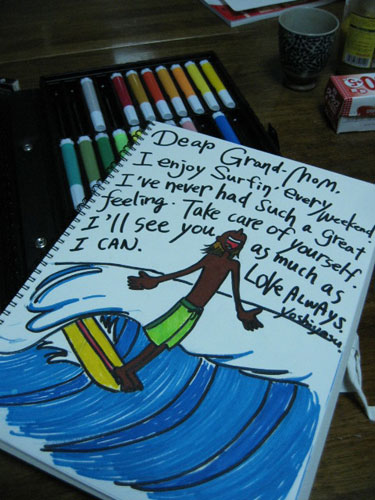 Deap Grand-Mom.
I enjoy Surfin' every weekend.
I've never had Such a great
feeling. Take care of yourself.
I'll see you as much as
I CAN.
LOVE ALWAYS.
Yoshiyasu